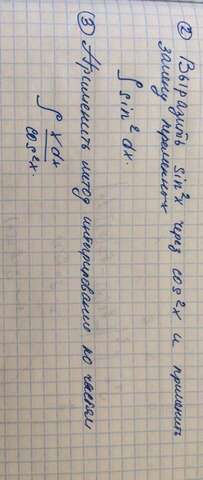 ② Выразить sin²x через cos²x и применить
замену переменных
∫ sin² dx.
③ Применить метод интегрирование по частям
∫ x dx / cos²x.